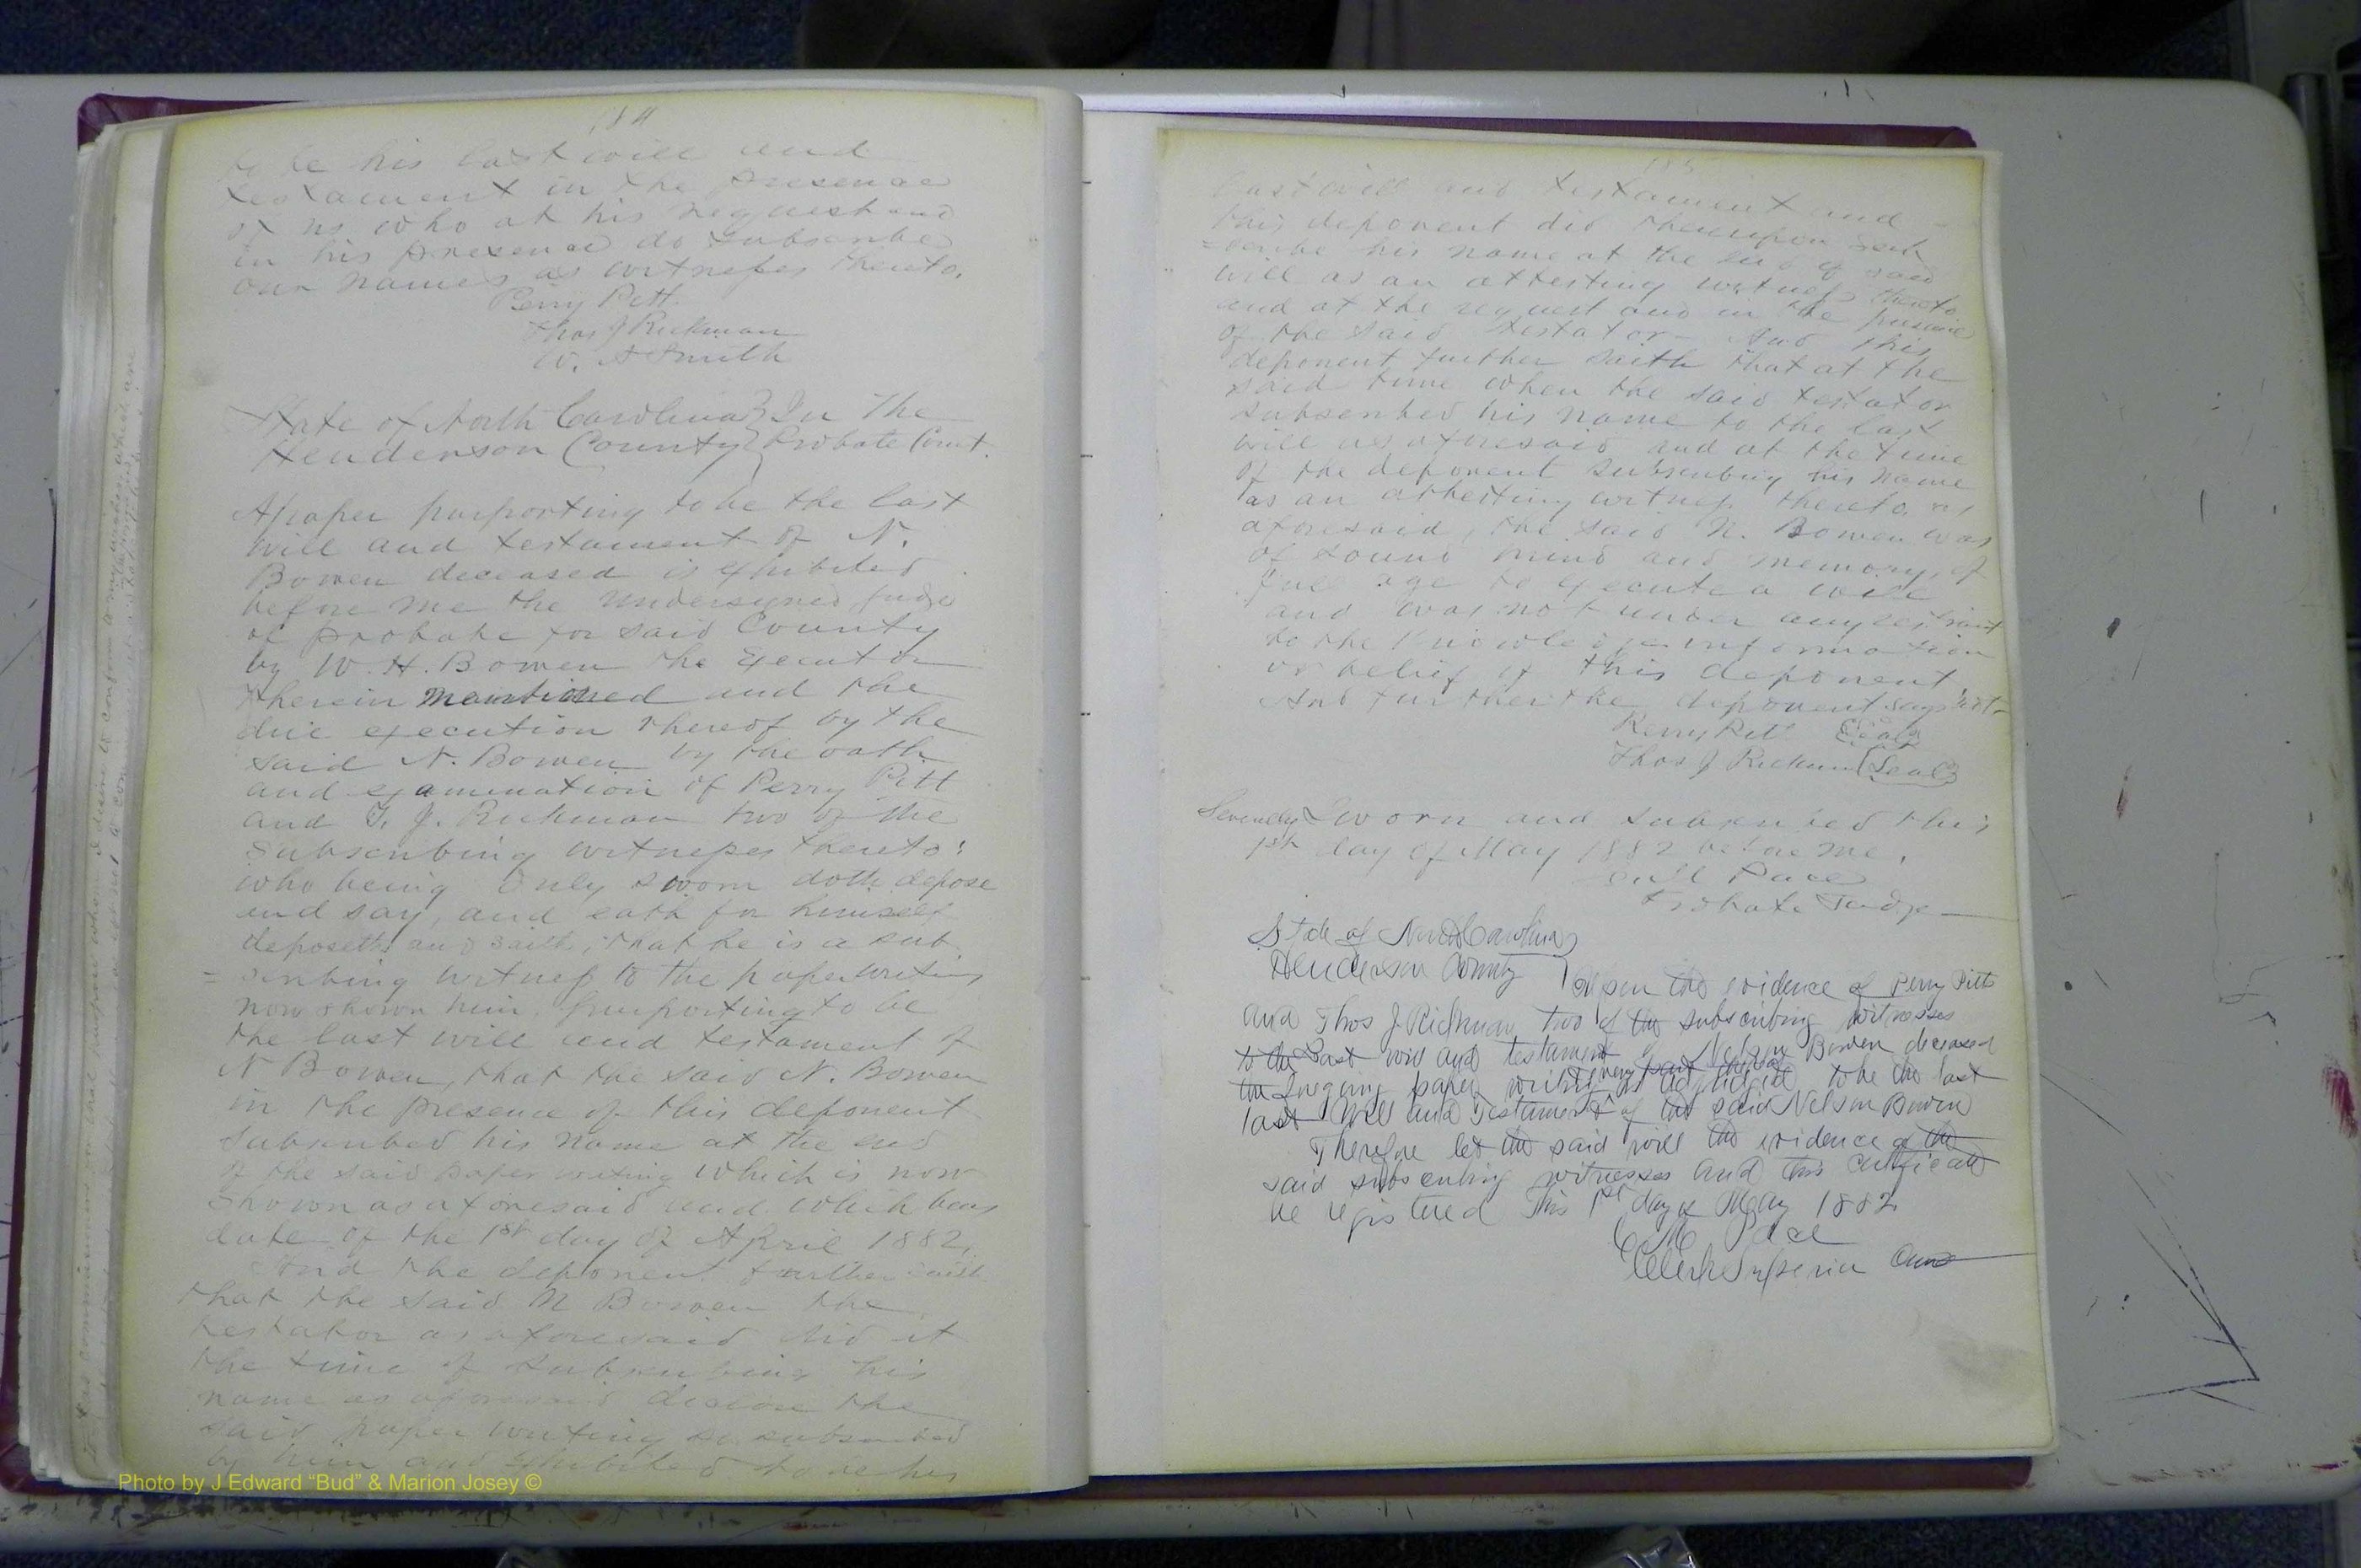 184
to be his last will and
testament in the presence
of us who at his request and
in his presence do subscribe
our names as witnesses thereto.
Perry Pitt
Thos J Rickman
W. A Smith
State of North Carolina } In The
Henderson County } Probate Court.
A paper purporting to be the last
will and testament of N.
Bowen deceased is exhibited
before me the undersigned judge
of probate for said County
by W. H. Bowen the Executor
therein mentioned and the
due execution thereof by the
said N. Bowen by the oath
and examination of Perry Pitt
and T. J. Rickman two of the
subscribing witnesses thereto;
who being duly sworn doth depose
and say, and each for himself
deposeth and saith, that he is a sub
= scribing witness to the paper writing
now shown him, purporting to be
the last will and testament of
N Bowen, that the said N. Bowen
in the presence of this deponent
subscribed his name at the end
of the said paper writing which is now
shown as aforesaid and which bears
date of the 1st day of April 1882.
And the deponent further saith
that the said N Bowen the
testator as aforesaid did at
the time of subscribing his
name as aforesaid declare the
said paper writing so subscribed
by him and exhibited to be his
185
last will and testament and
this deponent did thereupon sub
= scribe his name at the end of said
will as an attesting witness thereto
and at the request and in the presence
of the said testator- And this
deponent further saith that at the
said time when the said testator
subscribed his name to the last
will as aforesaid and at the time
of the deponent subscribing his name
as an attesting witness thereto as
aforesaid, the said N. Bowen was
of sound mind and memory, of
full age to execute a will
and was not under any restraint
to the knowledge information
or belief of this deponent
And further the deponent says not-
Perry Pitt (Seal)
Thos J Rickman (Seal)
Severally Sworn and subscribed this
1st day of May 1882 before me,
C M Pace
Probate Judge
State of North Carolina
Henderson County } Upon the evidence of Perry Pitts
and Thos J Rickman two of the subscribing witnesses
to the Last will and testament of Nelson Bowen deceased
the foregoing paper writing every part thereof is adjudged to be the last
last Will and Testament of the said Nelson Bowen
Therefore let the said will the evidence of the
said subscribing witnesses and this certificate
be registered This 1st day of May 1882
C M Pace
Clerk Superior Court
Photo by J Edward “Bud” & Marion Josey ©